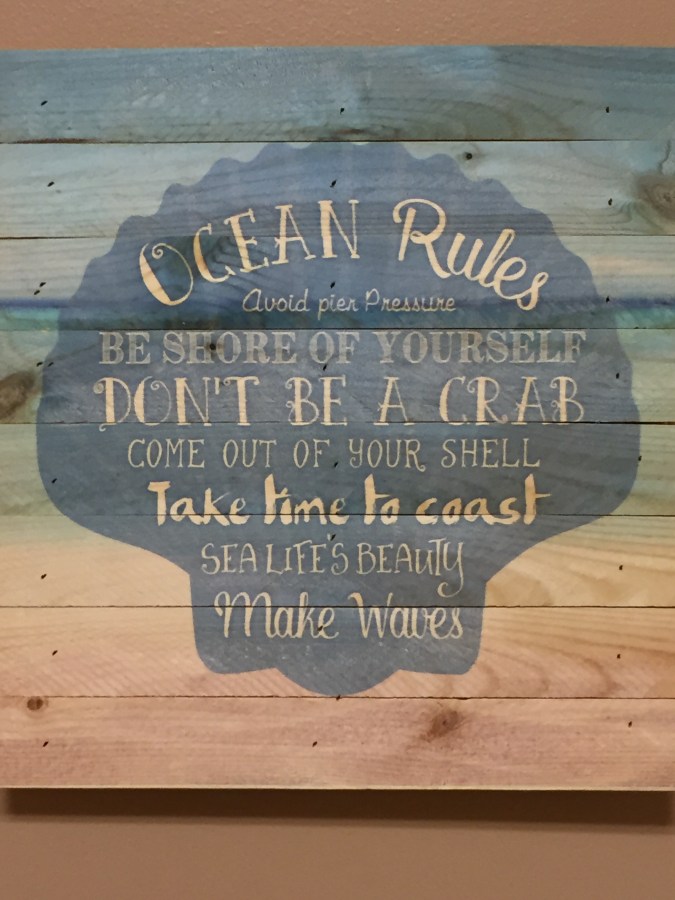 OCEAN Rules
Avoid pier Pressure
BE SHORE OF YOURSELF
DON'T BE A CRAB
COME OUT OF YOUR SHELL
Take time to coast
SEA LIFE'S BEAUTY
Make Waves